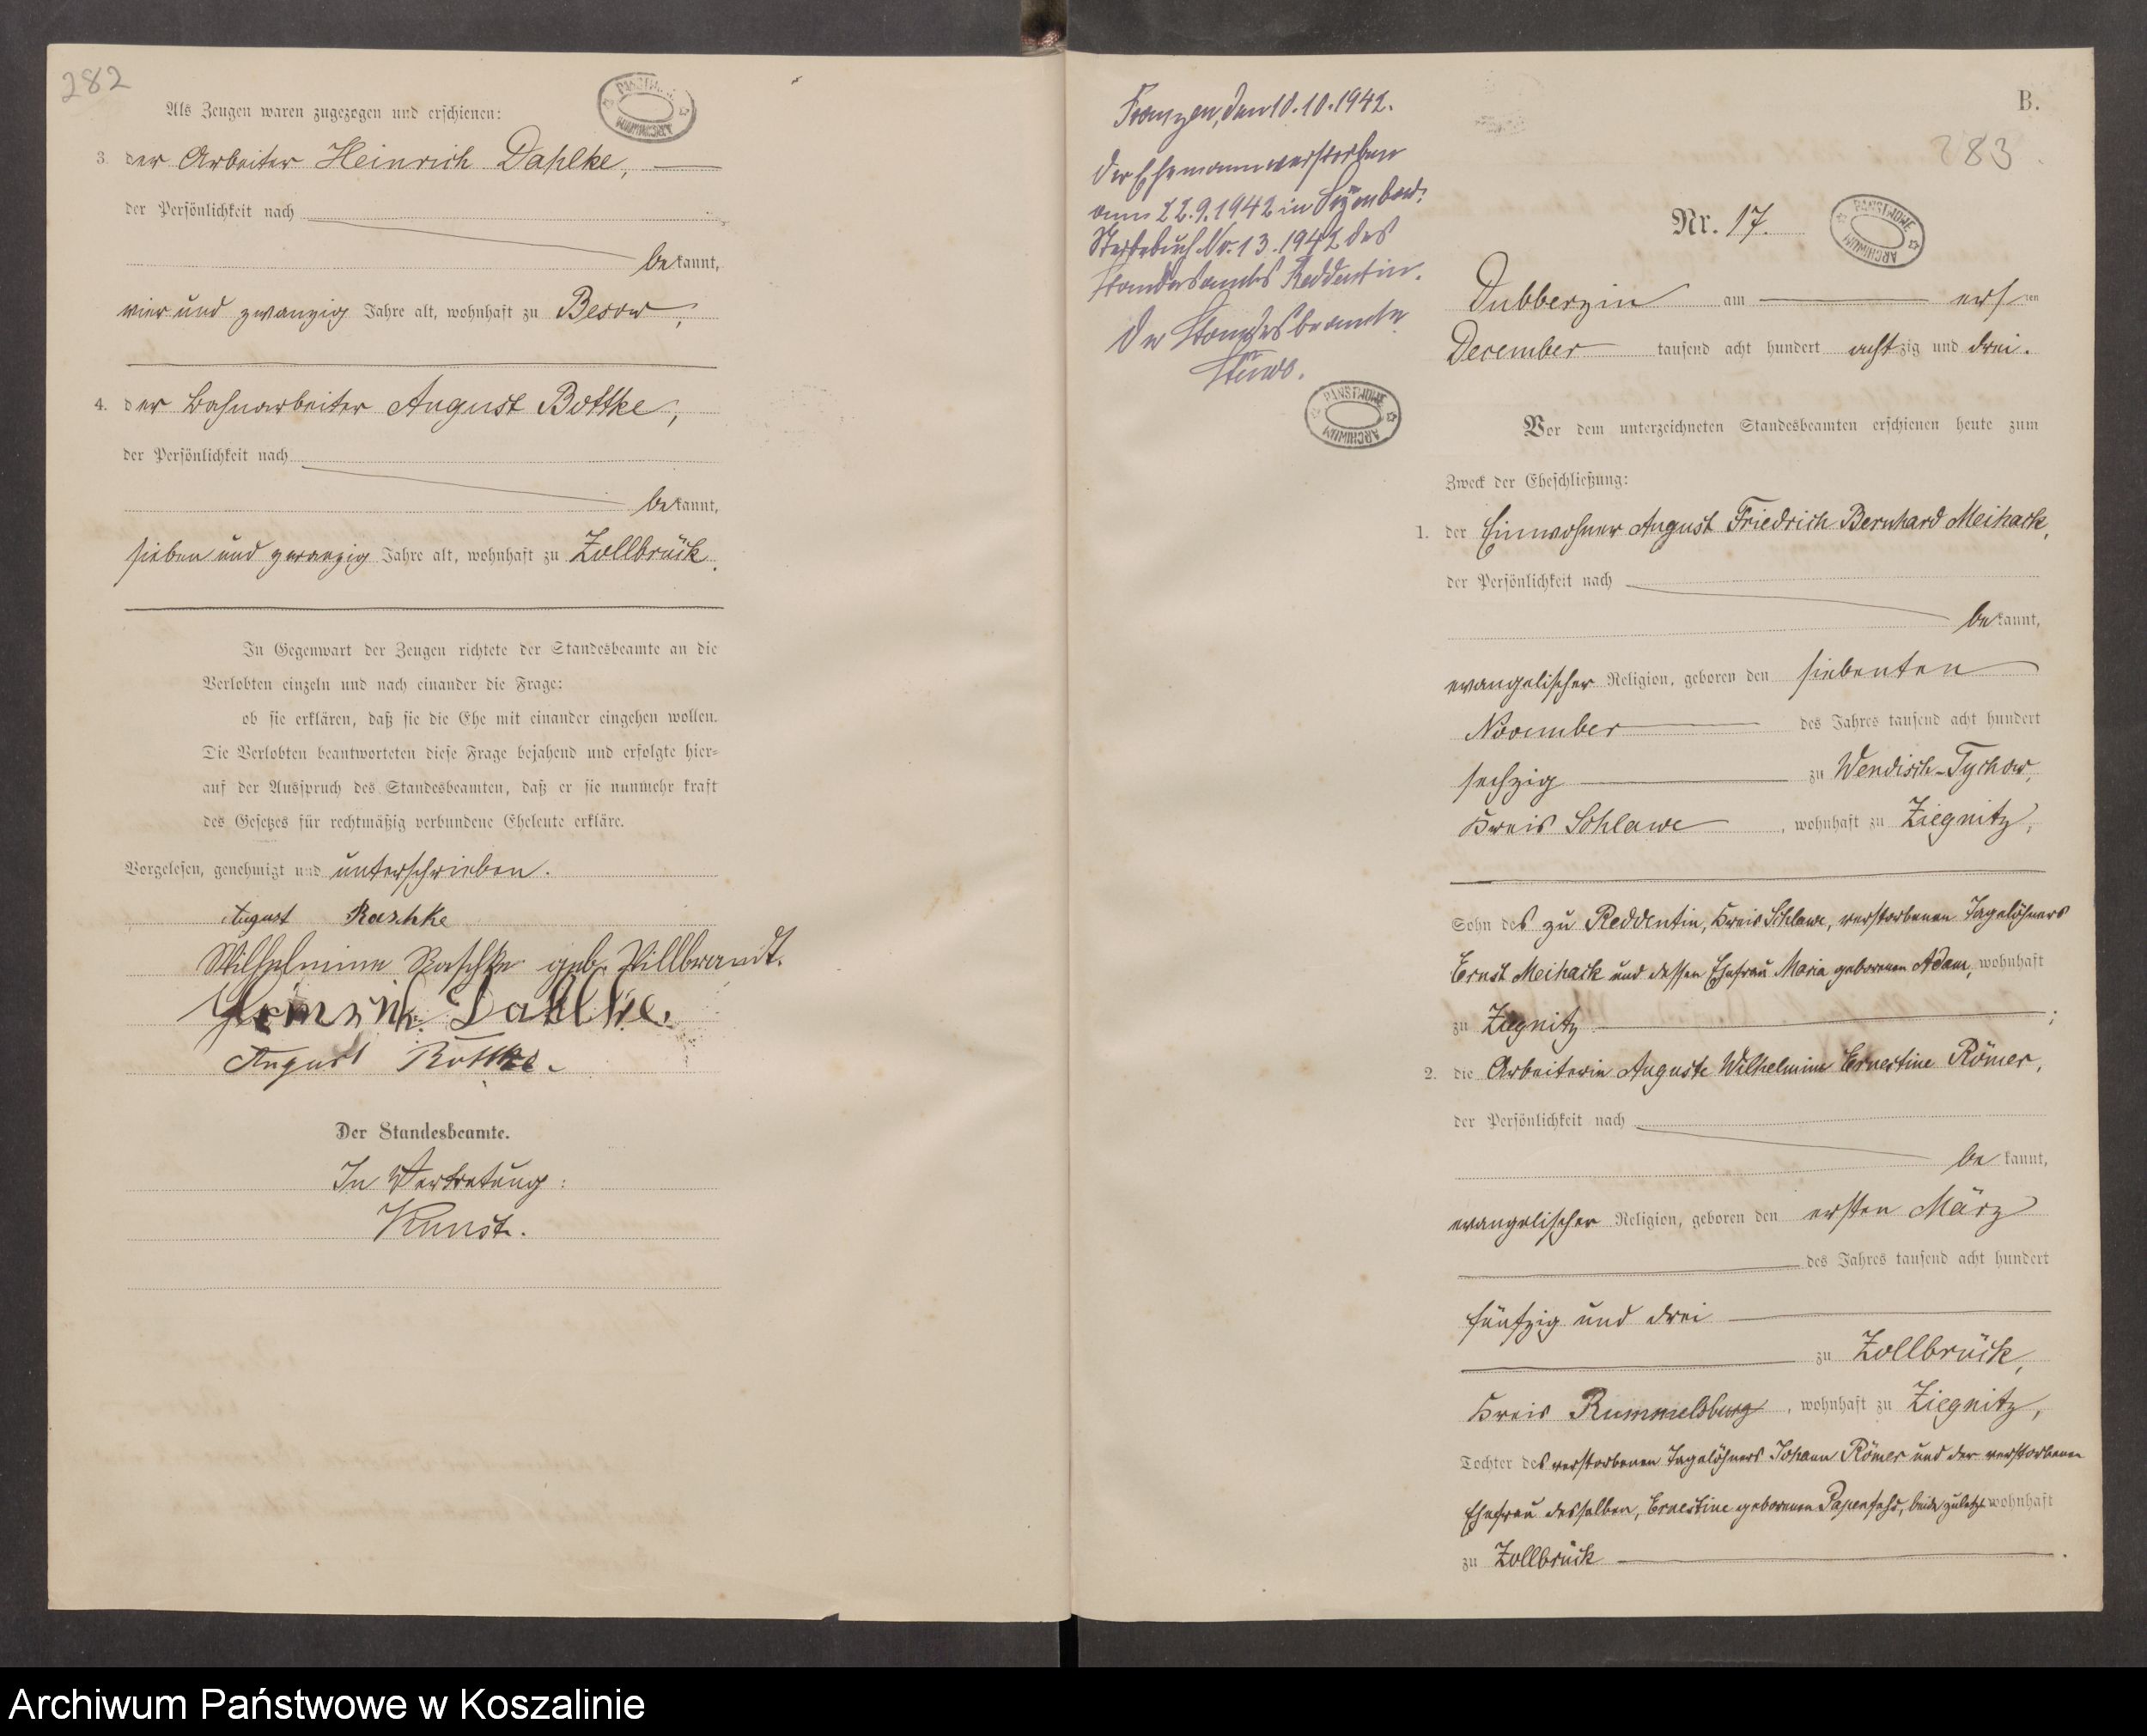 282
PAŃSTWOWE ARCHIWUM
Als Zeugen waren zugezogen und erschienen:
3. der Arbeiter Heinrich Dahlke,
der Persönlichkeit nach
bekannt,
vier und zwanzig Jahre alt, wohnhaft zu Besow,
4. der Bahnarbeiter August Bottke,
der Persönlichkeit nach
bekannt,
sieben und zwanzig Jahre alt, wohnhaft zu Zollbrück.
In Gegenwart der Zeugen richtete der Standesbeamte an die
Verlobten einzeln und nach einander die Frage:
ob sie erklären, daß sie die Ehe mit einander eingehen wollen.
Die Verlobten beantworteten diese Frage bejahend und erfolgte hier-
auf der Ausspruch des Standesbeamten, daß er sie nunmehr kraft
des Gesetzes für rechtmäßig verbundene Eheleute erkläre.
Vorgelesen, genehmigt und unterschrieben.
August Raschke
Wilhelmine Raschke geb. Villbrandt.
Heinrich Dahlke.
August Bottke.
Der Standesbeamte.
In Vertretung:
Kunst.
Franzen, den 10.10.1942.
Der Ehemann verstorben
am 22.9.1942 in
Sterbebuch Nr. 13.1942 des
Standesamts Reddentin.
Der Standesbeamte
PAŃSTWOWE ARCHIWUM
B.
283
Nr. 17.
PAŃSTWOWE ARCHIWUM
Dubberzin am ersten
December tausend acht hundert achtzig und drei.
Vor dem unterzeichneten Standesbeamten erschienen heute zum
Zweck der Eheschließung:
1. der Einwohner August Friedrich Bernhard Meihack,
der Persönlichkeit nach
bekannt,
evangelischer Religion, geboren den siebenten
November des Jahres tausend acht hundert
sechzig zu Wendisch-Tychow,
Kreis Schlawe, wohnhaft zu Ziegnitz,
Sohn des zu Reddentin, Kreis Schlawe, verstorbenen Tagelöhners
Ernst Meihack und dessen Ehefrau Maria geborenen Adam, wohnhaft
zu Ziegnitz;
2. die Arbeiterin Auguste Wilhelmine Ernestine Römer,
der Persönlichkeit nach
bekannt,
evangelischer Religion, geboren den ersten März
des Jahres tausend acht hundert
fünfzig und drei
zu Zollbrück,
Kreis Rummelsburg, wohnhaft zu Ziegnitz,
Tochter des verstorbenen Tagelöhners Johann Römer und der verstorbenen
Ehefrau desselben, Ernestine geborenen Papenfuhs, beide zuletzt wohnhaft
zu Zollbrück.
Archiwum Państwowe w Koszalinie